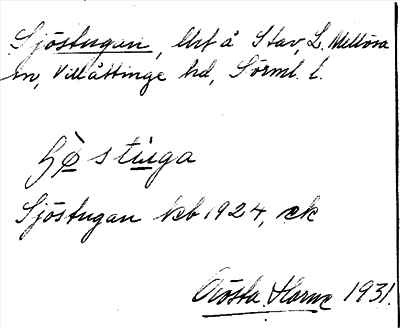 Sjöstugan, lht å Stav, L. Mellösa
sn, Villåttinge hd, Sörml. l.
stuga
Sjöstugan kb 1924, ek
Gösta 1931.